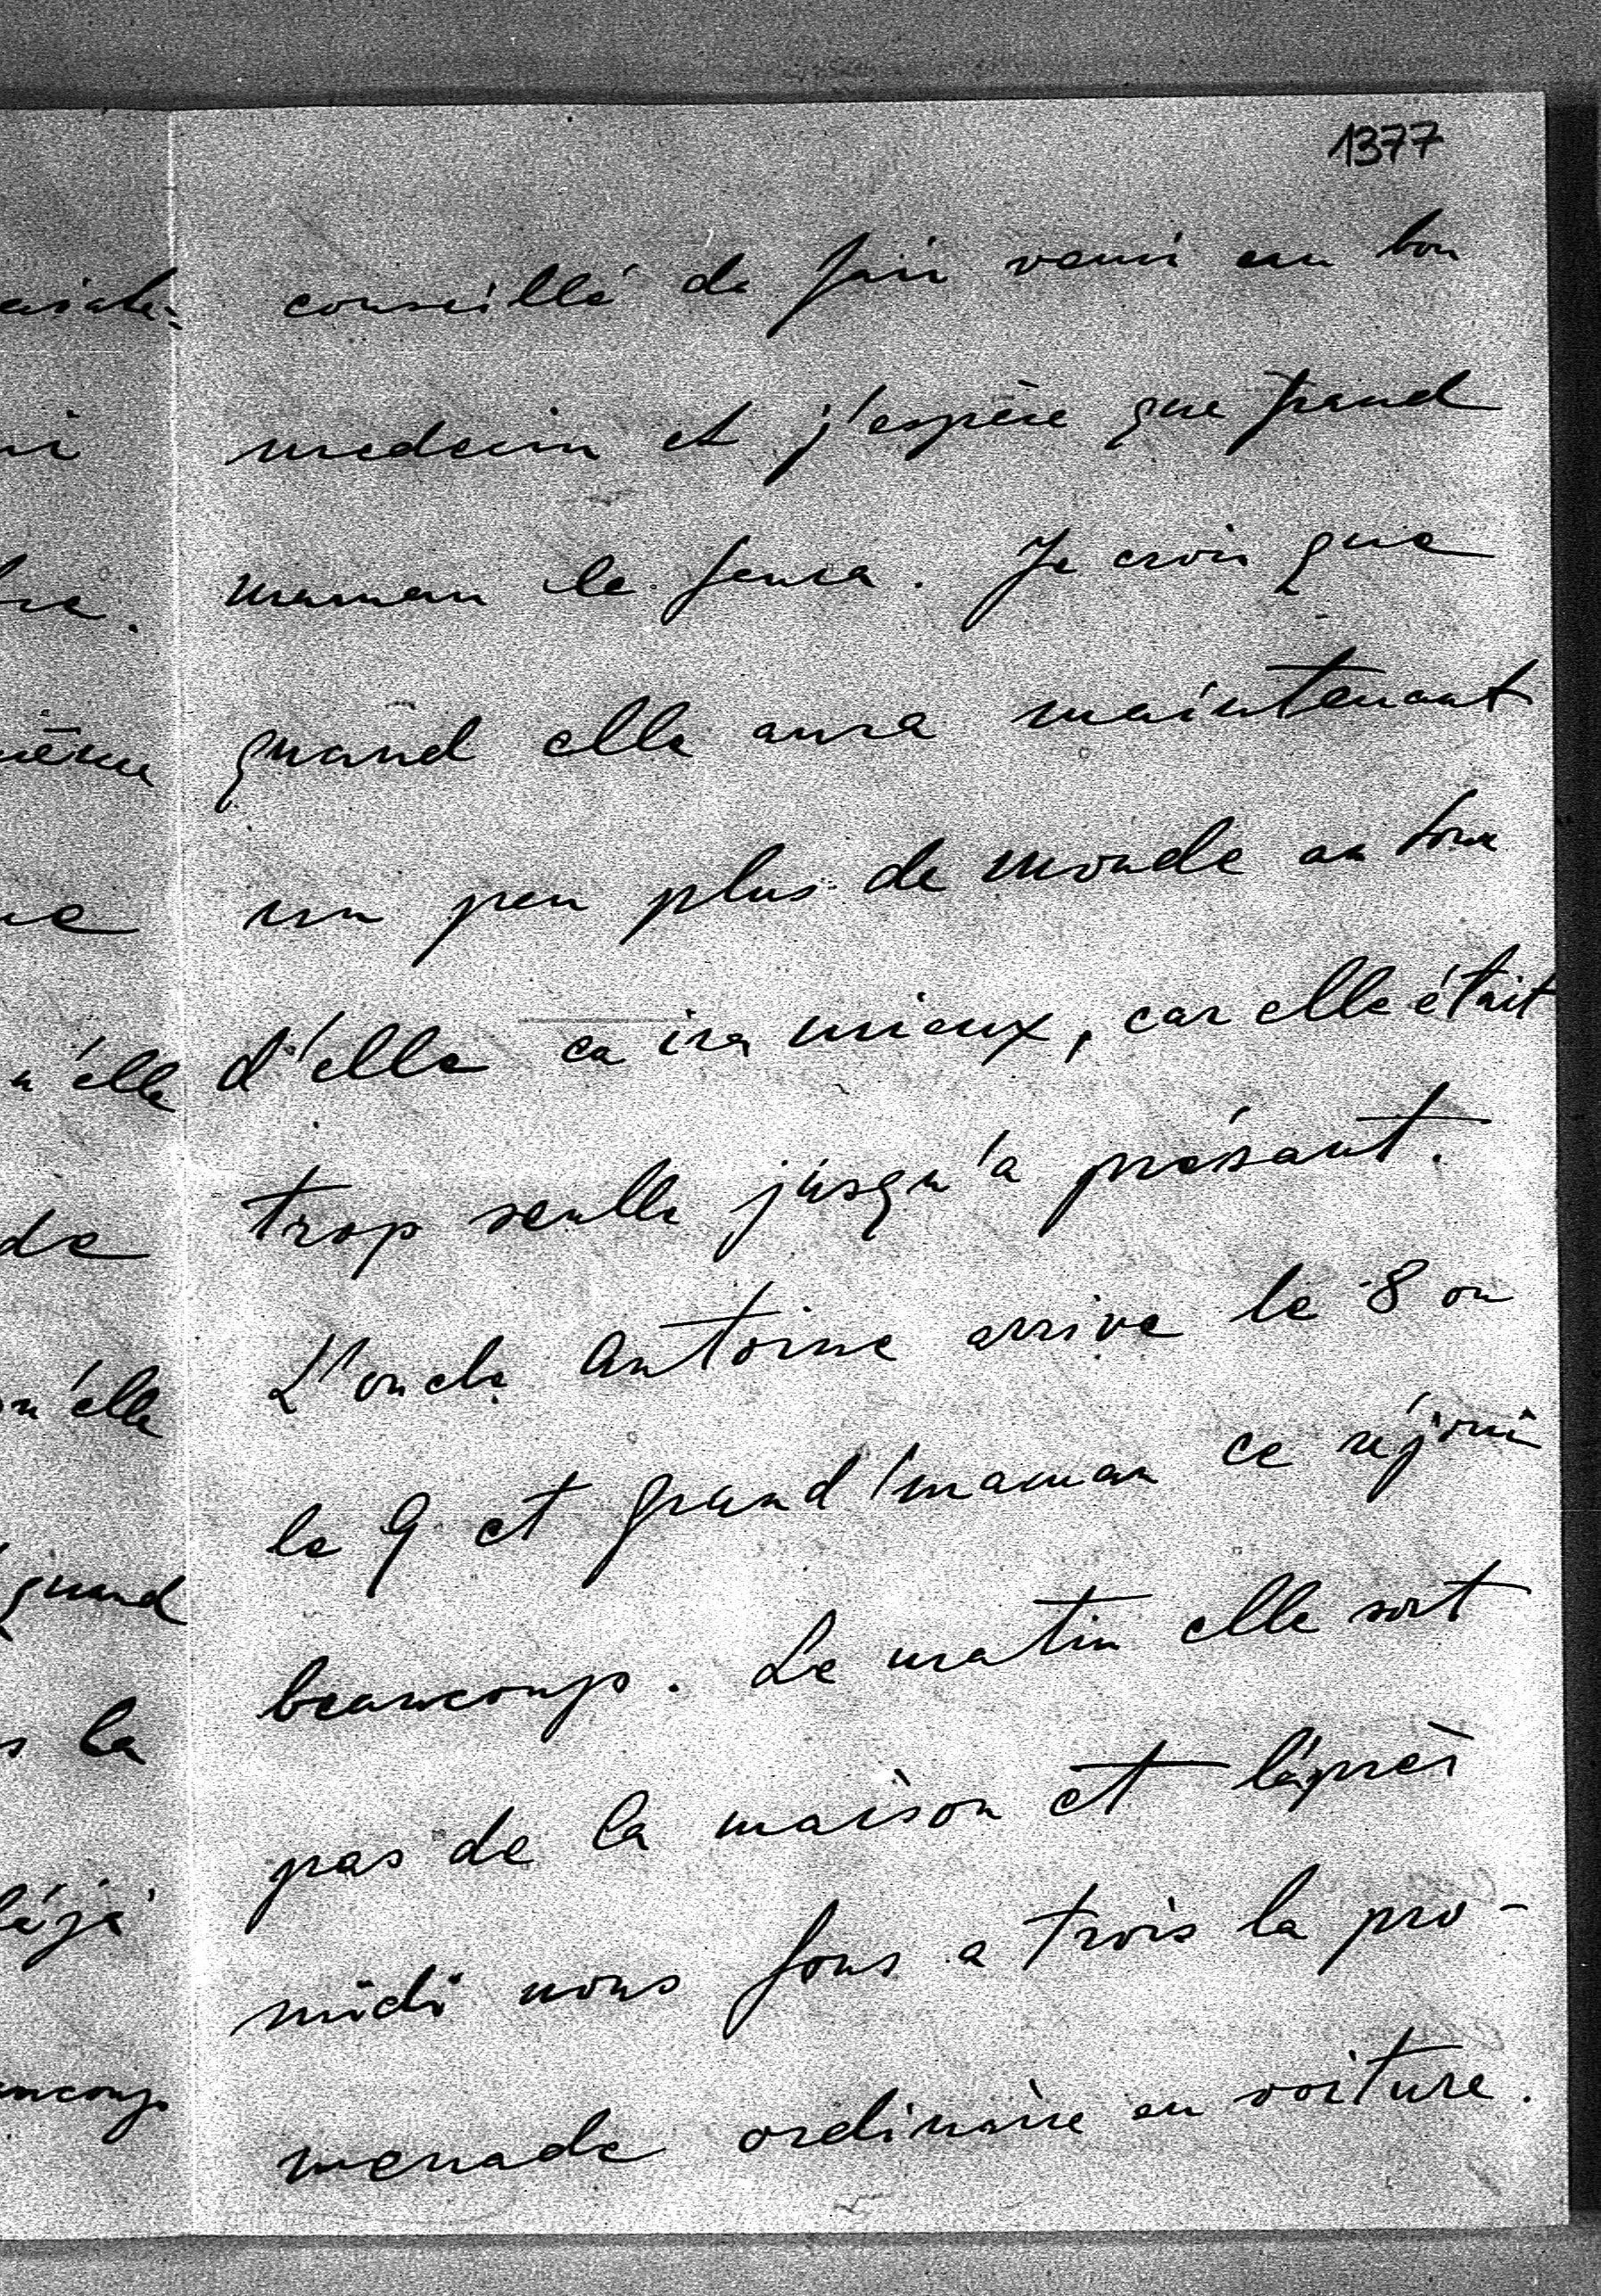 1377
conseillé de fair venir un bon
medecin et j'espère que grand
maman le fera. Je crois que
quand elle aura maintenant
un peu plus de monde au tour
d'elle ca ira mieux, car elle était
trop seulle jusqu'a présant.
L'oncle Antoine arrive le 8 ou
le 9 et grand'maman ce réjoui
beaucoup. Le matin elle sort
pas de la maison et l'après
midi nous fons a trois la pro-
menade ordinaire en voiture.
même
n'elle
de
qu'elle
quand
la